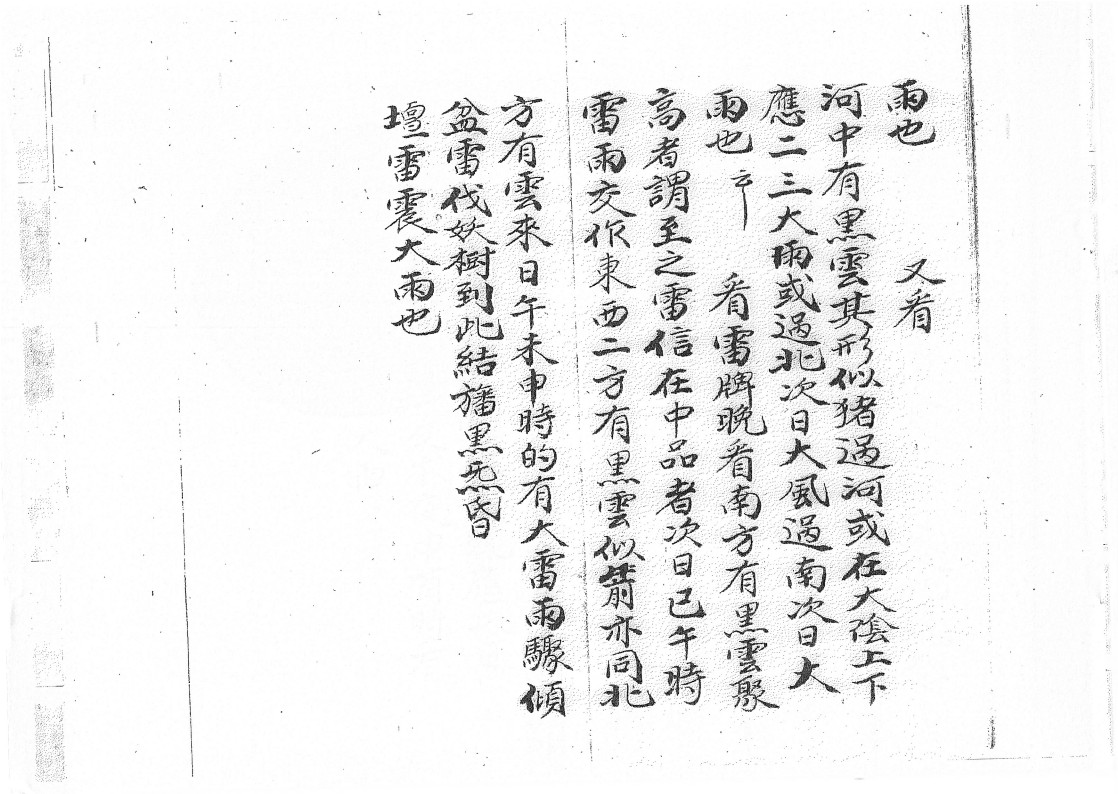 雨也　又看
河中有黒雲其形似猪過河或在大陰上下
應二三大雨或過北次日大風過南次日大
雨也　看雷牌晚看南方有黒雲聚
高者謂至之雷信在中品者次日巳午時
雷雨交作東西二方有黒雲似箭亦同北
方有雲來日午未申時的有大雷雨驟傾
盆雷伐妖樹到此結旛黒炁昏
壇雷震大雨也